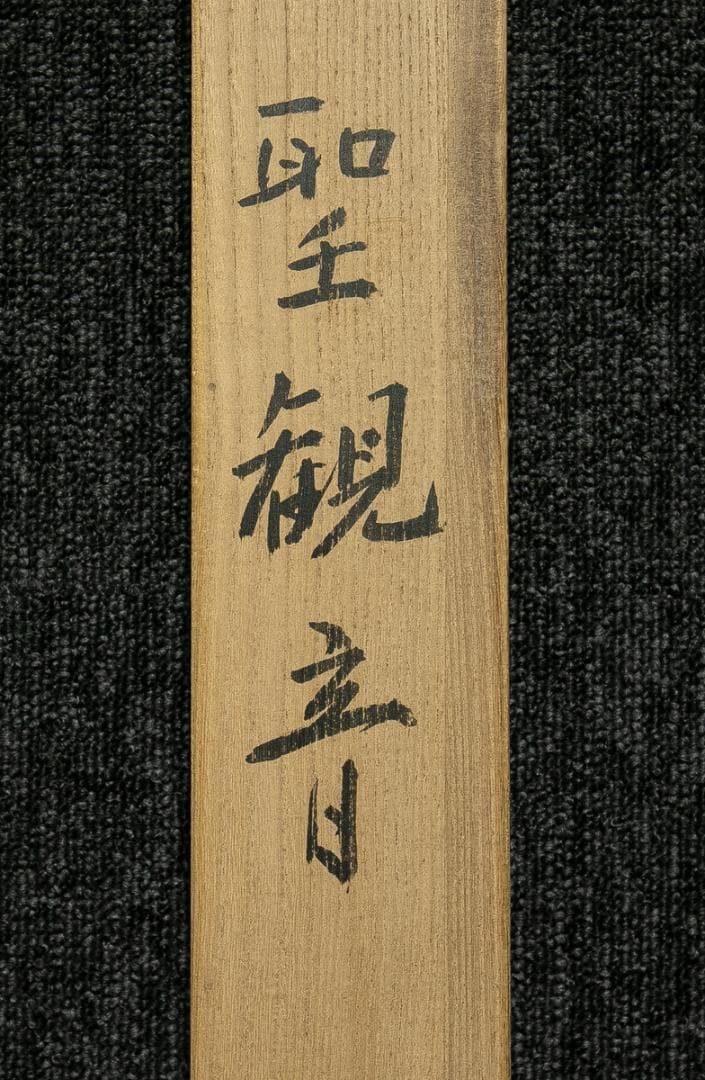 聖観音